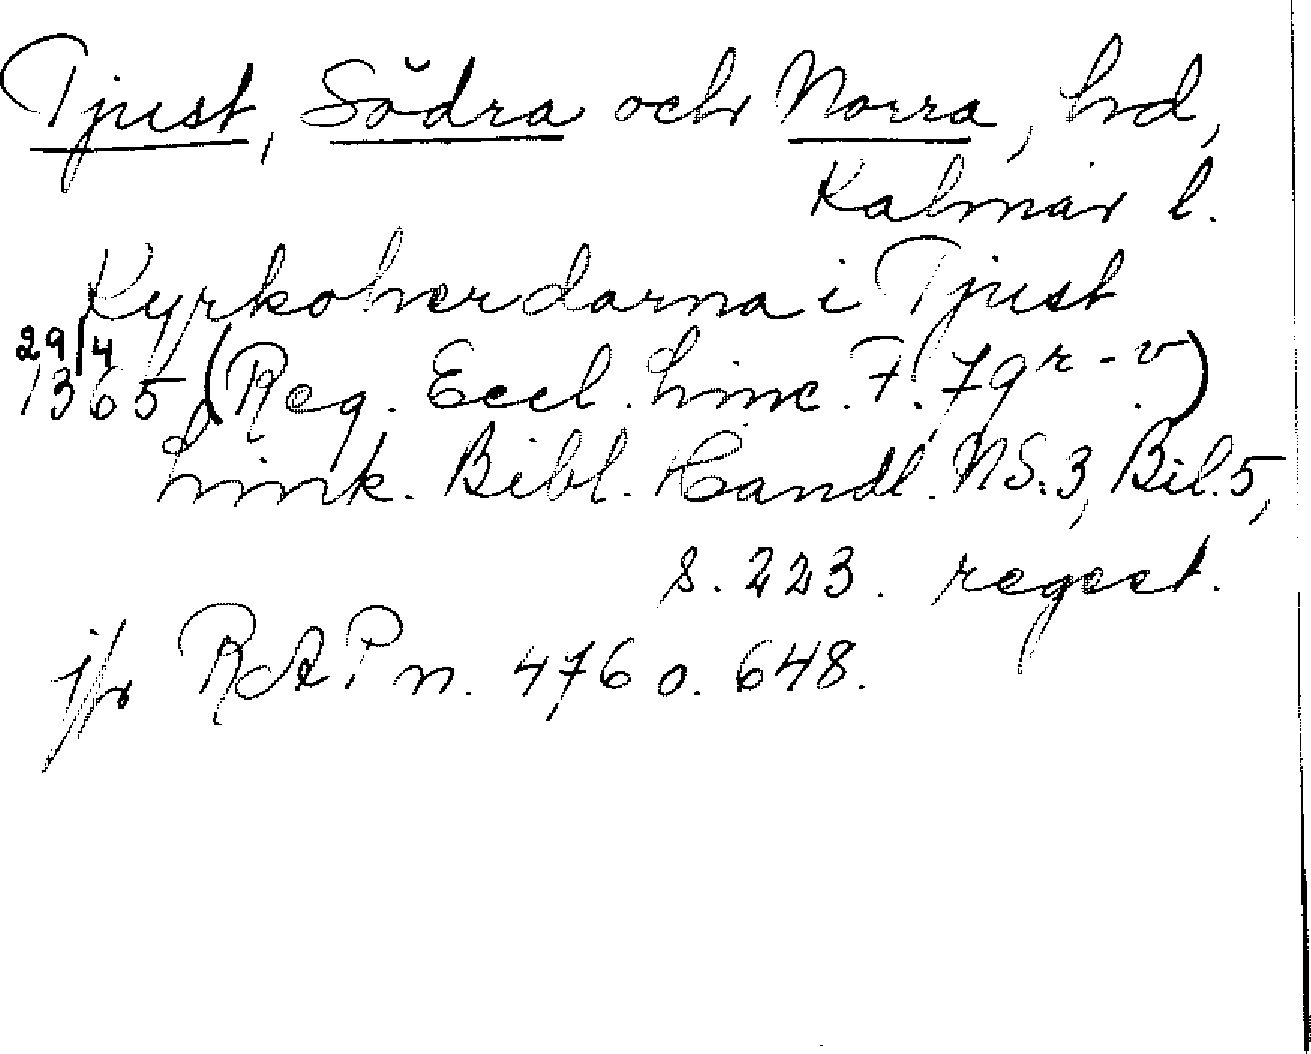 Tjust, Södra och Norra, hd,
Kalmar l.
Kyrkoherdarna i Tjust
29/4
1365 (Reg. Eccl. Linc. F. 79 r-v)
Link. Bibl. Handl. NS. 3, Bil. 5,
s. 223. regest.
jfr RAP n. 476 o. 648.